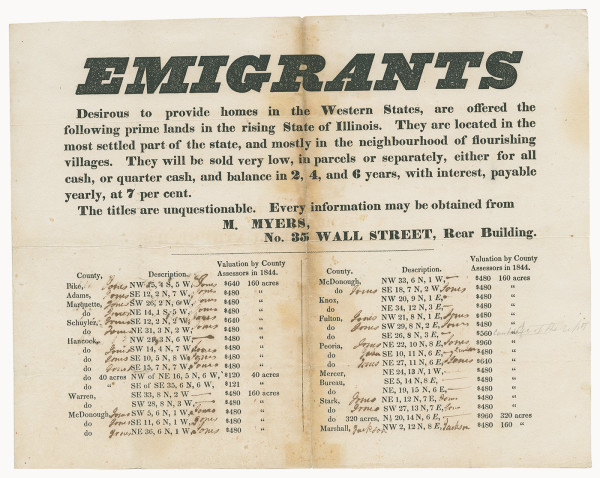 EMIGRANTS
Desirous to provide homes in the Western States, are offered the
following prime lands in the rising State of Illinois. They are located in the
most settled part of the state, and mostly in the neighbourhood of flourishing
villages. They will be sold very low, in parcels or separately, either for all
cash, or quarter cash, and balance in 2, 4, and 6 years, with interest, payable
yearly, at 7 per cent.
The titles are unquestionable. Every information may be obtained from
M. MYERS,
No. 35 WALL STREET, Rear Building.
County, Description. Valuation by County Assessors in 1844.
Pike, Jones NW 4 S, 5 W, Jones $640 160 acres
Adams, Jones SE 12, 2 N, 7 W, Jones $480 "
Marquette, Jones SW 26, 2 N, W, Jones $480 "
do Jones NE 14, 1 S, 5 W, Jones $480 "
Schuyler, Jones SE 12, 2 N, W, Jones $640 "
do Jones NE 31, 3 N, 2 W, $480 "
Hancock, NW 3 N, 6 W $480 "
do Jones SW 14, 4 N, 7 W, Jones $480 "
do Jones SE 10, 5 N, 8 W, Jones $480 "
do Jones SE 15, 7 N, 7 W, Jones $480 "
do 40 acres NW of NE 16, 5 N, 6 W, $120 40 acres
do " SE of SE 35, 6 N, 6 W, $121 "
Warren, SE 33, 8 N, 2 W $480 160 acres
do SW 28, 8 N, 3 W, $480 "
McDonough, Jones SW 5, 6 N, 1 W, Jones $480 "
do Jones SE 11, 6 N, 1 W, Jones $480 "
do Jones NE 36, 6 N, 1 W, Jones $480 "
County, Description. Valuation by County Assessors in 1844.
McDonough, NW 33, 6 N, 1 W, $480 160 acres
do Jones SE 18, 7 N, 2 W, Jones $480 "
Knox, NW 20, 9 N, 1 E, $480 "
do NE 34, 12 N, 3 E, $480 "
Fulton, Jones NW 21, 8 N, 1 E, Jones $480 "
do Jones SW 29, 8 N, 2 E, Jones $480 "
do SE 26, 8 N, 3 E, $560
Peoria, Jones NE 22, 10 N, 8 E, Jones $960 "
do SE 10, 11 N, 6 E, $480 "
do Jones NE 27, 11 N, 6 E, Jones $640 "
Mercer, NE 24, 13 N, 1 W, $480 "
Bureau, SE 5, 14 N, 8 E, $480 "
do NE, 19, 15 N, 6 E, $480 "
Stark, Jones NE 1, 12 N, 7 E, Jones $480 "
do Jones SW 27, 13 N, 7 E, Jones $480 "
do 320 acres, N½ 20, 14 N, 6 E, $960 320 acres
Marshall, Jackson NW 2, 12 N, 8 E, Jackson $480 160 "